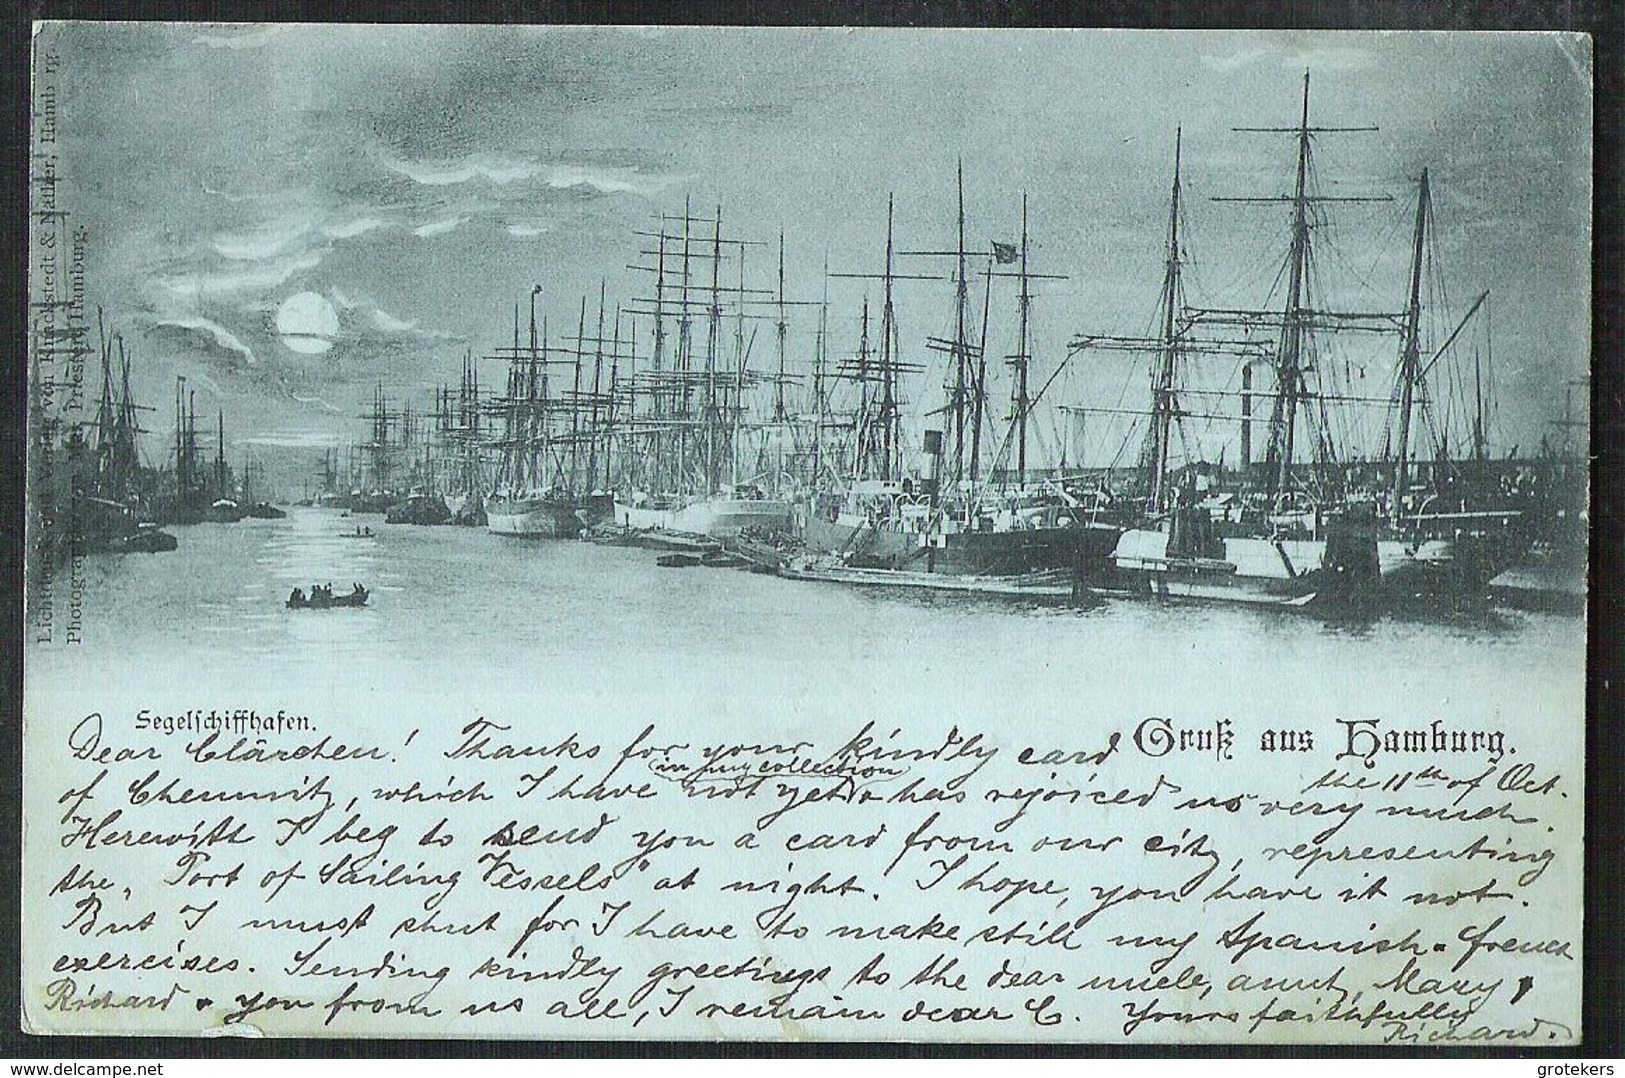 Lichtdruck und Verlag von Knackstedt & Näther, Hamb rg.
Photographie von Max Priester, Hamburg.
Segelschiffhafen.
Gruß aus Hamburg.
the 11th of Oct.
Dear Clärchen! Thanks for your kindly card
in my collection
of Chemnitz, which I have not yet & has rejoiced us very much.
Herewith I beg to send you a card from our city, representing
the „Port of Sailing Vessels" at night. I hope, you have it not.
But I must shut for I have to make still my Spanish & french
exercises. Sending kindly greetings to the dear uncle, aunt, Mary,
Richard & you from us all, I remain dear C. Yours faithfully
Richard.
delcampe.net
grotekers